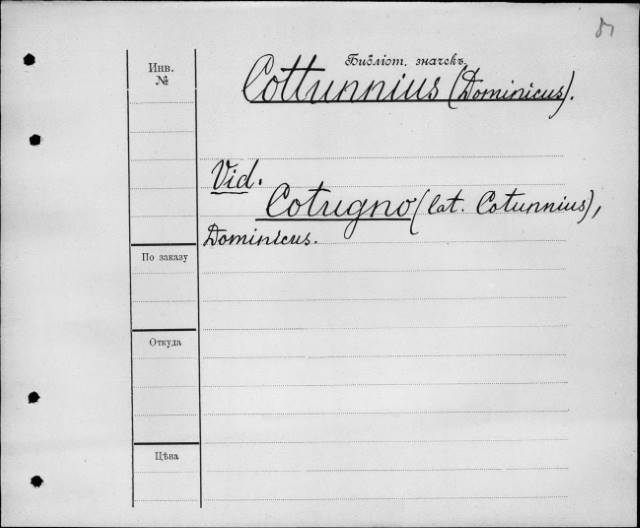 Инв. №
Библіот. значекъ.
Cottunnius (Dominicus).
Vid.
Cotugno (lat. Cotunnius),
Dominicus.
По заказу
Откуда
Цѣна